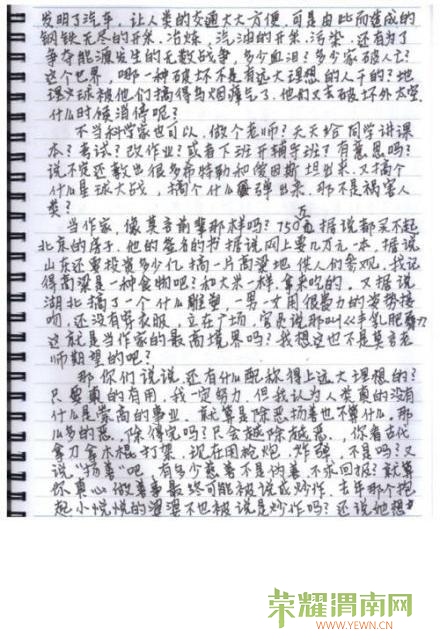 发明了汽车,让人类的交通大大方便,可是由此而造成的
钢铁无尽的开采、冶炼,汽油的开采、污染,还有为了
争夺能源发生的无数战争,多少血泪?多少家破人亡?
这个世界,哪一种破坏不是有远大理想的人干的?地
球被他们搞得乌烟瘴气了,他们又去破坏外太空,
什么时候消停呢?
不当科学家也可以,做个老师?天天给同学讲课
本?考试?改作业?或者下班开辅导班?有意思吗?
说不定还教出很多希特勒和爱因斯坦出来,又搞个
什么星球大战,搞个什么弹出来,那不是祸害人
类?
当作家,像莫言前辈那样吗?750万,据说都买不起
北京的房子,他的签名的书据说网上要几万元一本,据说
山东还要投资多少亿,搞一片高粱地供人们参观,我记
得高粱是一种食物吧?和大米一样,拿来吃的,又据说
湖北搞了一个什么雕塑,一男一女用很费力的姿势接
吻,还没有穿衣服,立在广场,官员说那叫《丰乳肥臀》,
这就是当作家的最高境界吗?我想这也不是莫言老
师期望的吧?
那你们说说,还有什么配称得上远大理想的?
只要真的有用,我一定努力,但我认为人类真的没有
什么是崇高的事业,就算是除恶扬善也不算什么,那
么多的恶,除得完吗?只会越除越恶,你看古代
拿刀拿木棍打架,现在用枪炮、炸弹,不是吗?又
说“扬善”吧,有多少慈善不是伪善、不求回报?就算
你真心做善事最终可能被说成炒作,去年那个抱
起小悦悦的婆婆不也被说是炒作吗?还说她想
荣耀渭南网
WWW.YEWN.CN